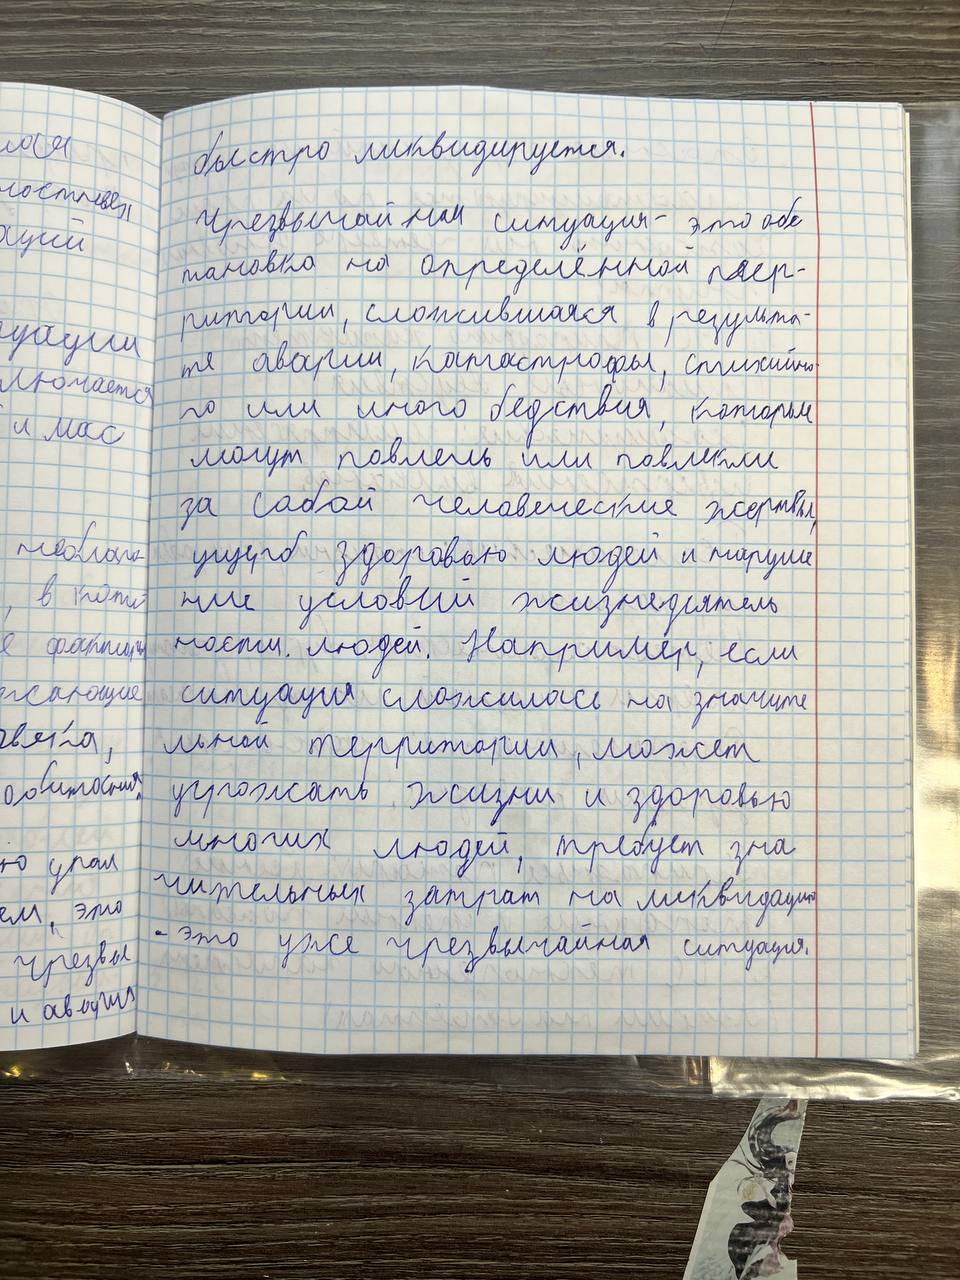 лючается
и мас
неблаго-
, в кото
е факторы
жающие
это
чрезвы
и авария
быстро ликвидируется.
Чрезвычайная ситуация- это обс
тановка на определённой тер-
ритории, сложившаяся в результа-
те аварии, катастрофы, стихийно-
го или иного бедствия, которые
могут повлечь или повлекли
за сабой человеческие жертвы,
ущерб здоровью людей и наруше
ние условий жизнедеятель
ности. людей. Например, если
ситуация сложилась на значите
льной территории, может
угрожать жизни и здоровью
многих людей, требует зна
чительных затрат на ликвидацию
- это уже чрезвычайная ситуация.